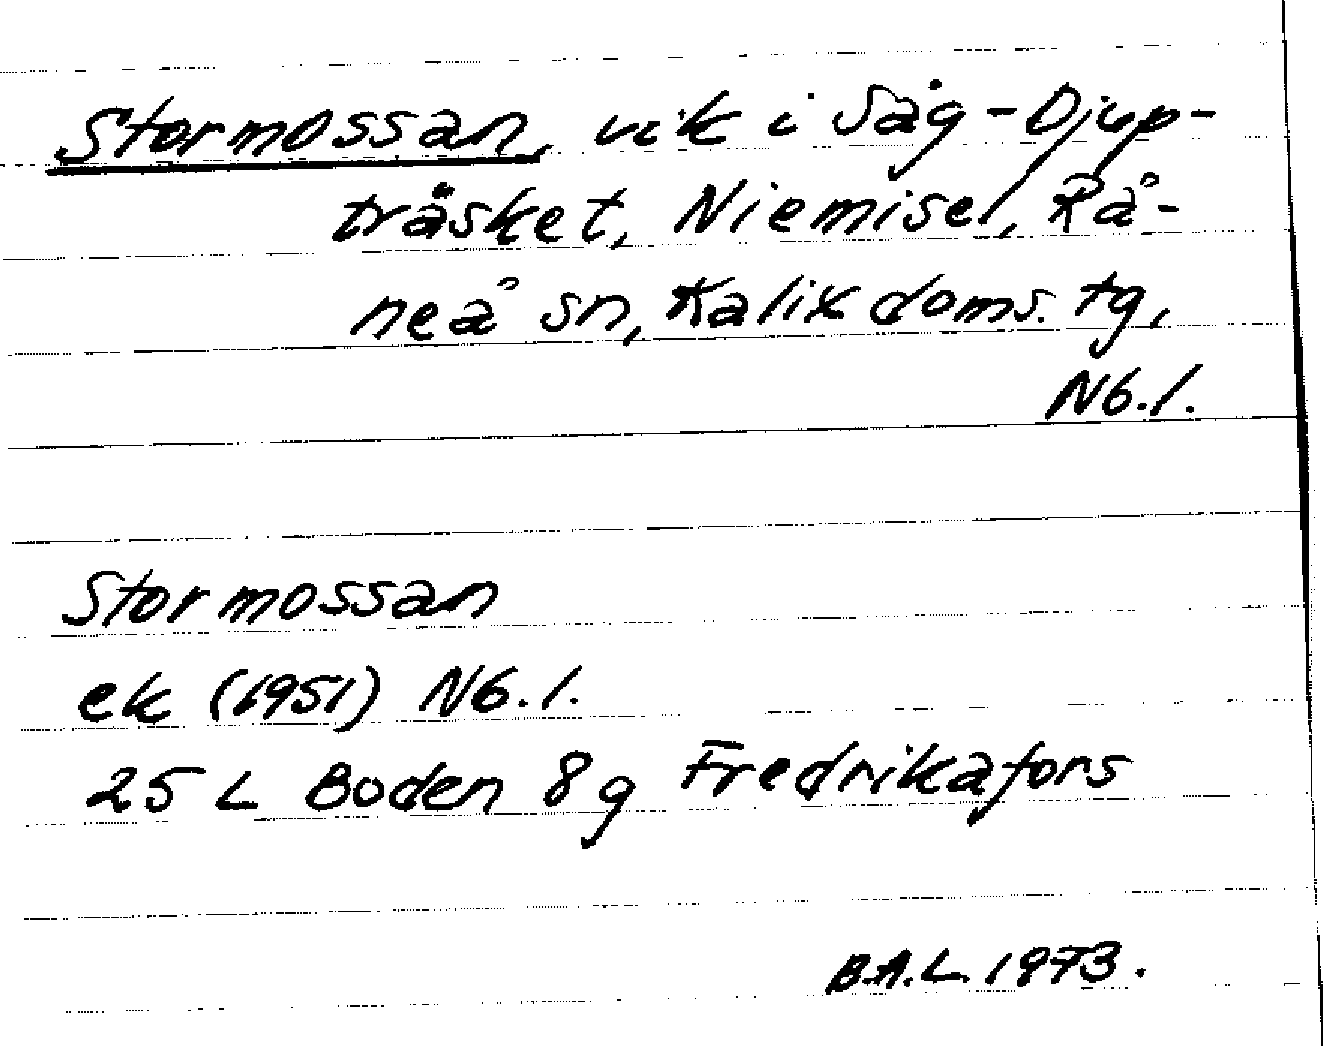 Stormossan, vik i Såg-Djup-
träsket, Niemisel, Rå-
neå sn, Kalix doms. tg,
Nb.l.
Stormossan
ek (1951) Nb.l.
25 L Boden 8g Fredrikafors
B.A.L. 1973.